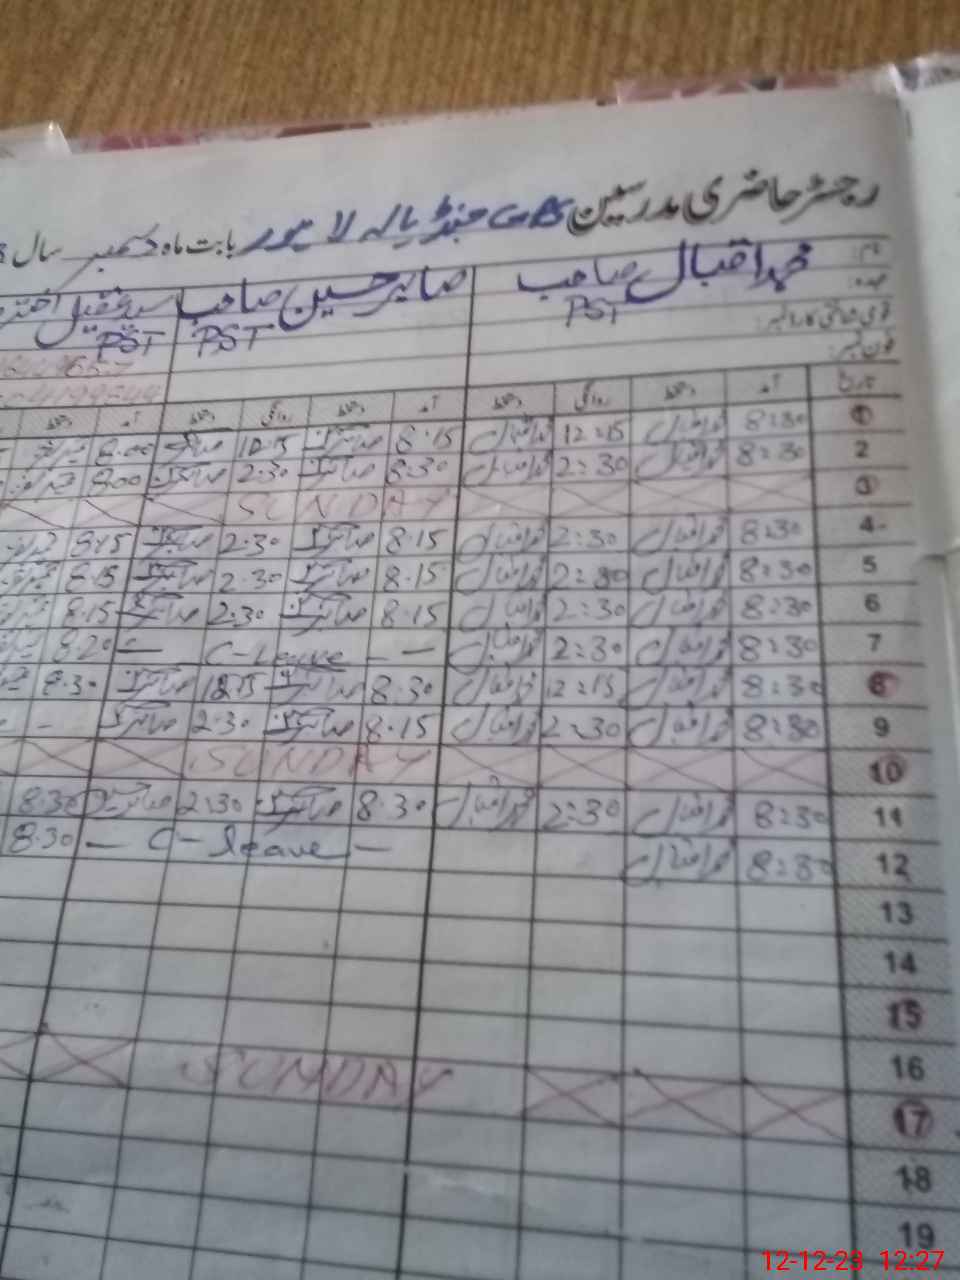 رجسٹر حاضری مدرسین GBS جنڈیالہ لاہور بابت ماہ دسمبر سال
نام: محمد اقبال صاحب صابر حسین صاحب
عہدہ: PST PST PST
قومی شناختی کارڈ نمبر:
فون نمبر:
تاریخ آمد دستخط روانگی دستخط آمد دستخط روانگی دستخط آمد دستخط
1 8:30 محمد اقبال 12:15 محمد اقبال 8.15 صابر 12.15 صابر 8.00
2 8:30 محمد اقبال 2:30 محمد اقبال 8.30 صابر 2.30 صابر 8.00
3 SUNDAY
4 8:30 محمد اقبال 2:30 محمد اقبال 8.15 صابر 2.30 صابر 8.15
5 8:30 محمد اقبال 2:30 محمد اقبال 8.15 صابر 2.30 صابر 8.15
6 8:30 محمد اقبال 2:30 محمد اقبال 8.15 صابر 2.30 صابر 8.15
7 8:30 محمد اقبال 2:30 محمد اقبال — C-Leave — 8.20
8 8:30 محمد اقبال 12:15 محمد اقبال 8.30 صابر 12.15 صابر 8.30
9 8:30 محمد اقبال 2:30 محمد اقبال 8.15 صابر 2.30 صابر -
10 SUNDAY
11 8:30 محمد اقبال 2:30 محمد اقبال 8.30 صابر 2:30 صابر 8.30
12 8:30 محمد اقبال — C-leave — 8.30
13
14
15
16
17 SUNDAY
18
19
12-12-23 12:27